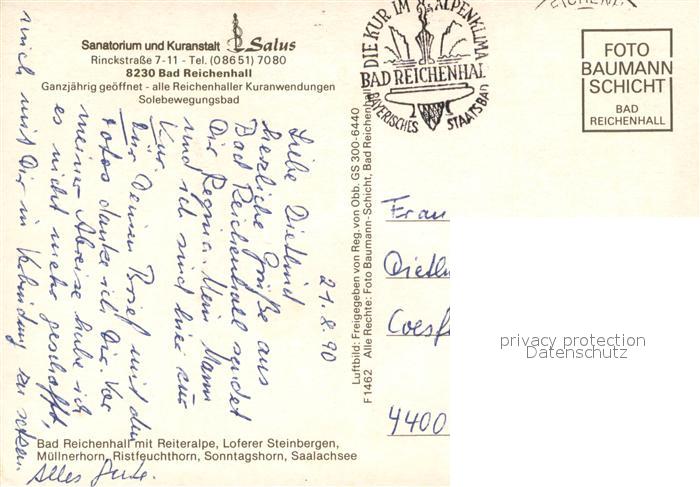 Sanatorium und Kuranstalt Salus
Rinckstraße 7-11 - Tel. (08651) 7080
8230 Bad Reichenhall
Ganzjährig geöffnet - alle Reichenhaller Kuranwendungen
Solebewegungsbad
DIE KUR IM ALPENKLIMA
BAD REICHENHALL
BAYERISCHES STAATSBAD
FOTO
BAUMANN
SCHICHT
BAD
REICHENHALL
21.8.90
Liebe Dietlind
herzliche Grüße aus
Bad Reichenhall sendet
Dir Regina. Mein Mann
und ich sind hier zur
Kur.
Für Deinen Brief mit den
Fotos danke ich Dir. Vor
meiner Abreise habe ich
es nicht mehr geschafft,
mich mit Dir in Verbindung zu setzen.
Alles Gute.
Luftbild: Freigegeben von Reg. von Obb. GS 300-6440
F1462 Alle Rechte: Foto Baumann-Schicht, Bad Reichenhall
Frau
Dietl
Coesf
4400
privacy protection
Datenschutz
Bad Reichenhall mit Reiteralpe, Loferer Steinbergen,
Müllnerhorn, Ristfeuchthorn, Sonntagshorn, Saalachsee